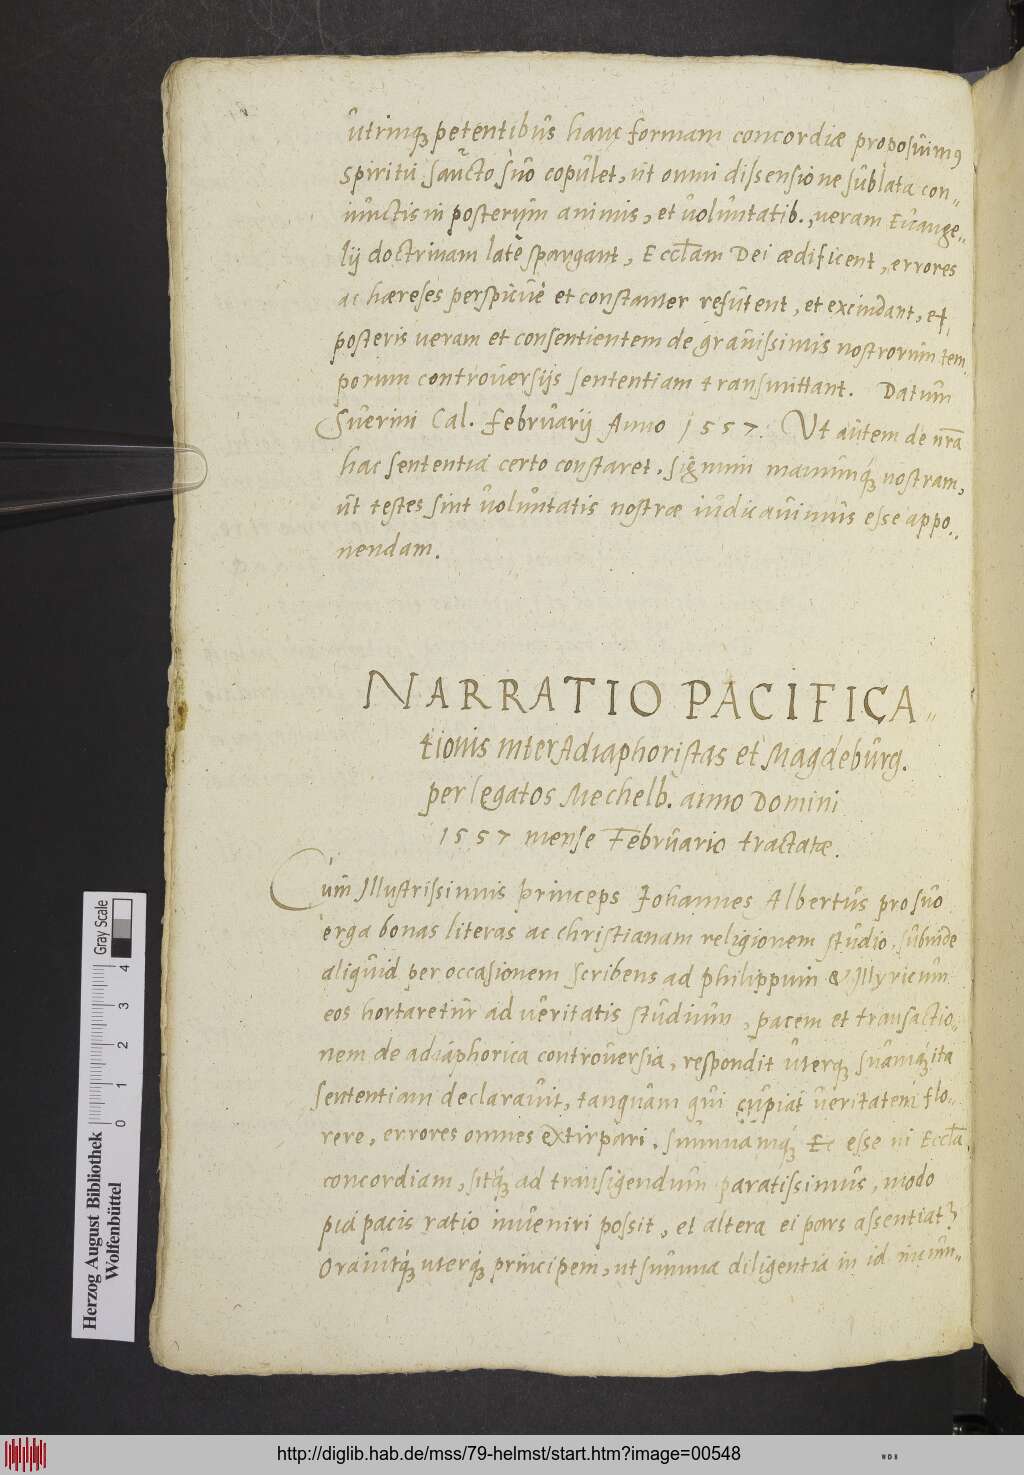 utrinq; petentibus hanc formam concordiæ proposuimus
Spiritu sancto suo copulet, ut omni dissensione sublata con=
iunctis in posterum animis, et uoluntatib., ueram Euange=
lij doctrinam latè spargant, Eccłam Dei ædificent, errores
ac hæreses perspicuè et constanter refutent, et excindant, et
posteris ueram et consentientem de grauissimis nostrorum tem=
porum controuersijs sententiam transmittant. Datum
Suerini Cal. februarij Anno 1557. Ut autem de nr̃a
hac sententia certo constaret, signum manumq́; nostram,
ut testes sint uoluntatis nostræ iudicauimus esse appo=
nendam.
NARRATIO PACIFICA=
tionis inter Adiaphoristas et Magdeburg.
per legatos Mechelb. anno Domini
1557 mense Februario tractatæ.
Cum Illustrissimus princeps Johannes Albertus pro suo
erga bonas literas ac christianam religionem studio, subinde
aliquid per occasionem scribens ad Philippum & Illyricum
eos hortaretur ad ueritatis studium, pacem et transactio=
nem de adiaphorica controuersia, respondit uterq; suamq́; ita
sententiam declarauit, tanquam qui cupiat ueritatem flo=
rere, errores omnes extirpari, summamq́; Ec esse in Eccła
concordiam, sitq́; ad transigendum paratissimus, modo
pia pacis ratio inueniri possit, et altera ei pars assentiat?
Orauitq́; uterq́; principem, ut summa diligentia in id incum=
Herzog August Bibliothek
Wolfenbüttel
0 1 2 3 4
Gray Scale
http://diglib.hab.de/mss/79-helmst/start.htm?image=00548
WDB